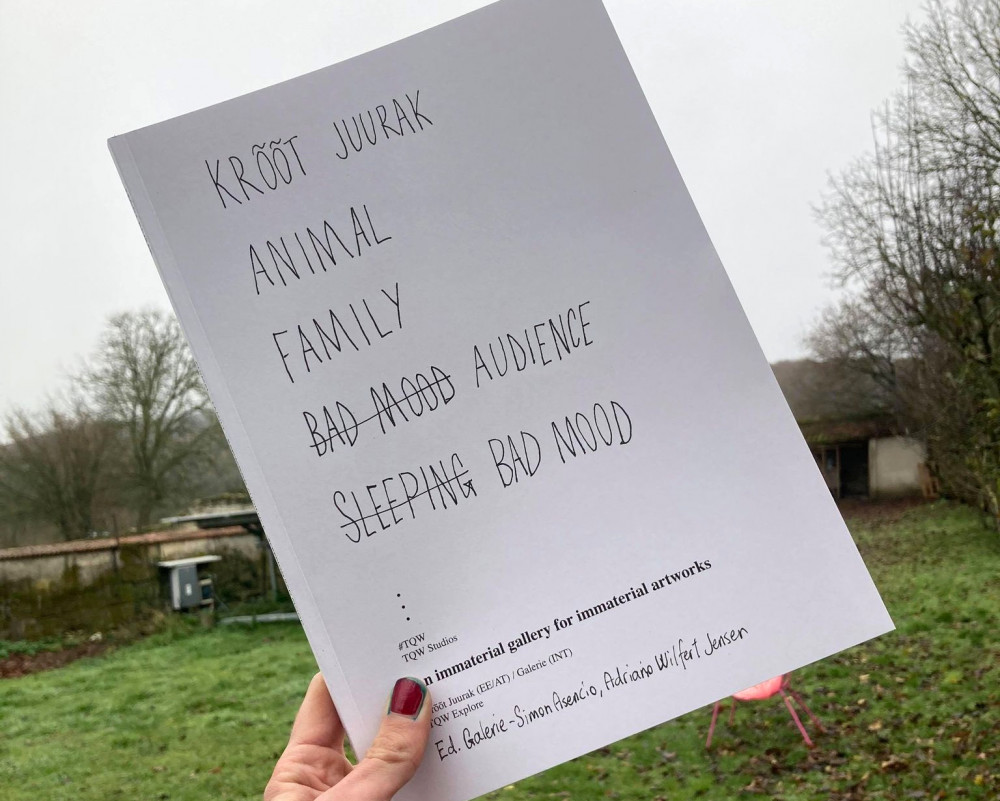 KRÕÕT JUURAK
ANIMAL
FAMILY
BAD MOOD AUDIENCE
SLEEPING BAD MOOD
#TQW
TQW Studios
immaterial gallery for immaterial artworks
Juurak (EE/AT) / Galerie (INT)
Explore
Ed. Galerie-Simon Asencio, Adriano Wilfert Jensen